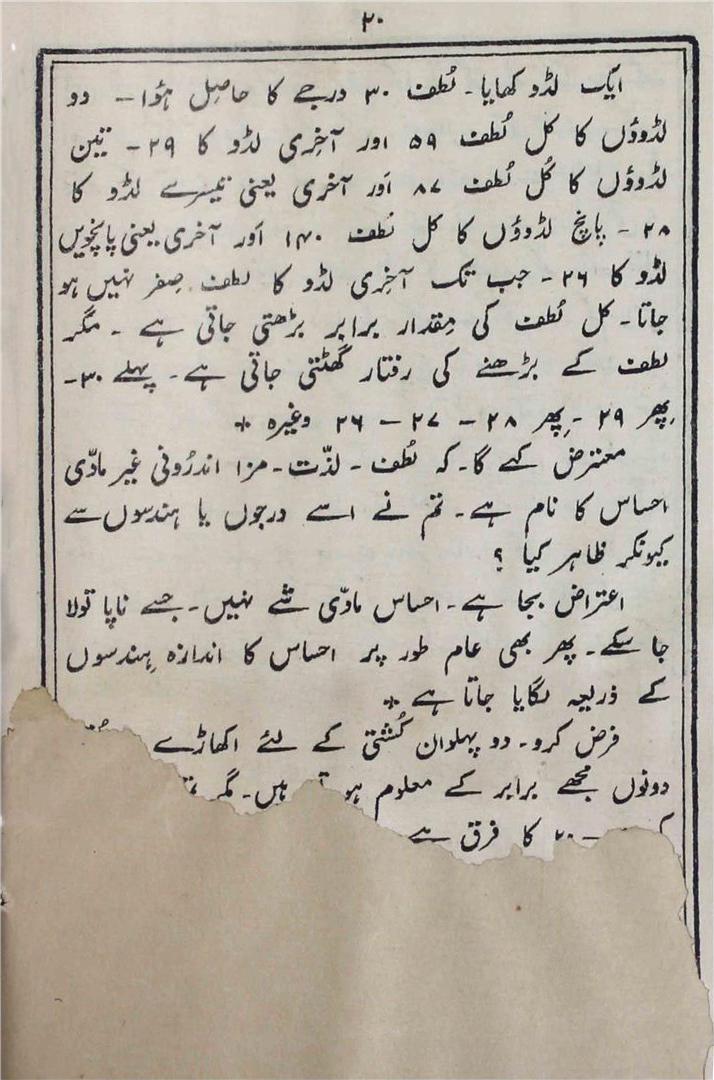 ۲۰
ایک لڈو کھایا۔ لُطف ۳۰ درجے کا حاصِل ہؤا۔ دو
لڈوؤں کا کل لُطف ۵۹ اور آخِری لڈو کا ۲۹۔ تین
لڈوؤں کا کُل لُطف ۸۷ اَور آخری یعنی تیسرے لڈو کا
۲۸۔ پانچ لڈوؤں کا کل لُطف ۱۴۰ اَور آخری یعنی پانچویں
لڈو کا ۲۶۔ جب تک آخِری لڈو کا لطف صِفر نہیں ہو
جاتا۔ کل لُطف کی مِقدار برابر بڑھتی جاتی ہے۔ مگر
لطف کے بڑھنے کی رفتار گھٹتی جاتی ہے۔ پہلے ۳۰۔
پِھر ۲۹۔ پِھر ۲۸۔ ۲۷۔ ۲۶ وغیرہ *
معترض کہے گا۔ کہ لُطف۔ لذّت۔ مزا اندرُونی غیر مادّی
احساس کا نام ہے۔ تم نے اسے درجوں یا ہندسوں سے
کیونکر ظاہر کیا ؟
اعتراض بجا ہے۔ احساس مادّی شے نہیں۔ جسے ناپا تولا
جا سکے۔ پھر بھی عام طور پر احساس کا اندازہ ہِندسوں
کے ذریعہ لگایا جاتا ہے *
فرض کرو۔ دو پہلوان کُشتی کے لئے اکھاڑے
دونوں مجھے برابر کے معلوم ہو ہیں۔ مگر
۲۰ کا فرق ہے